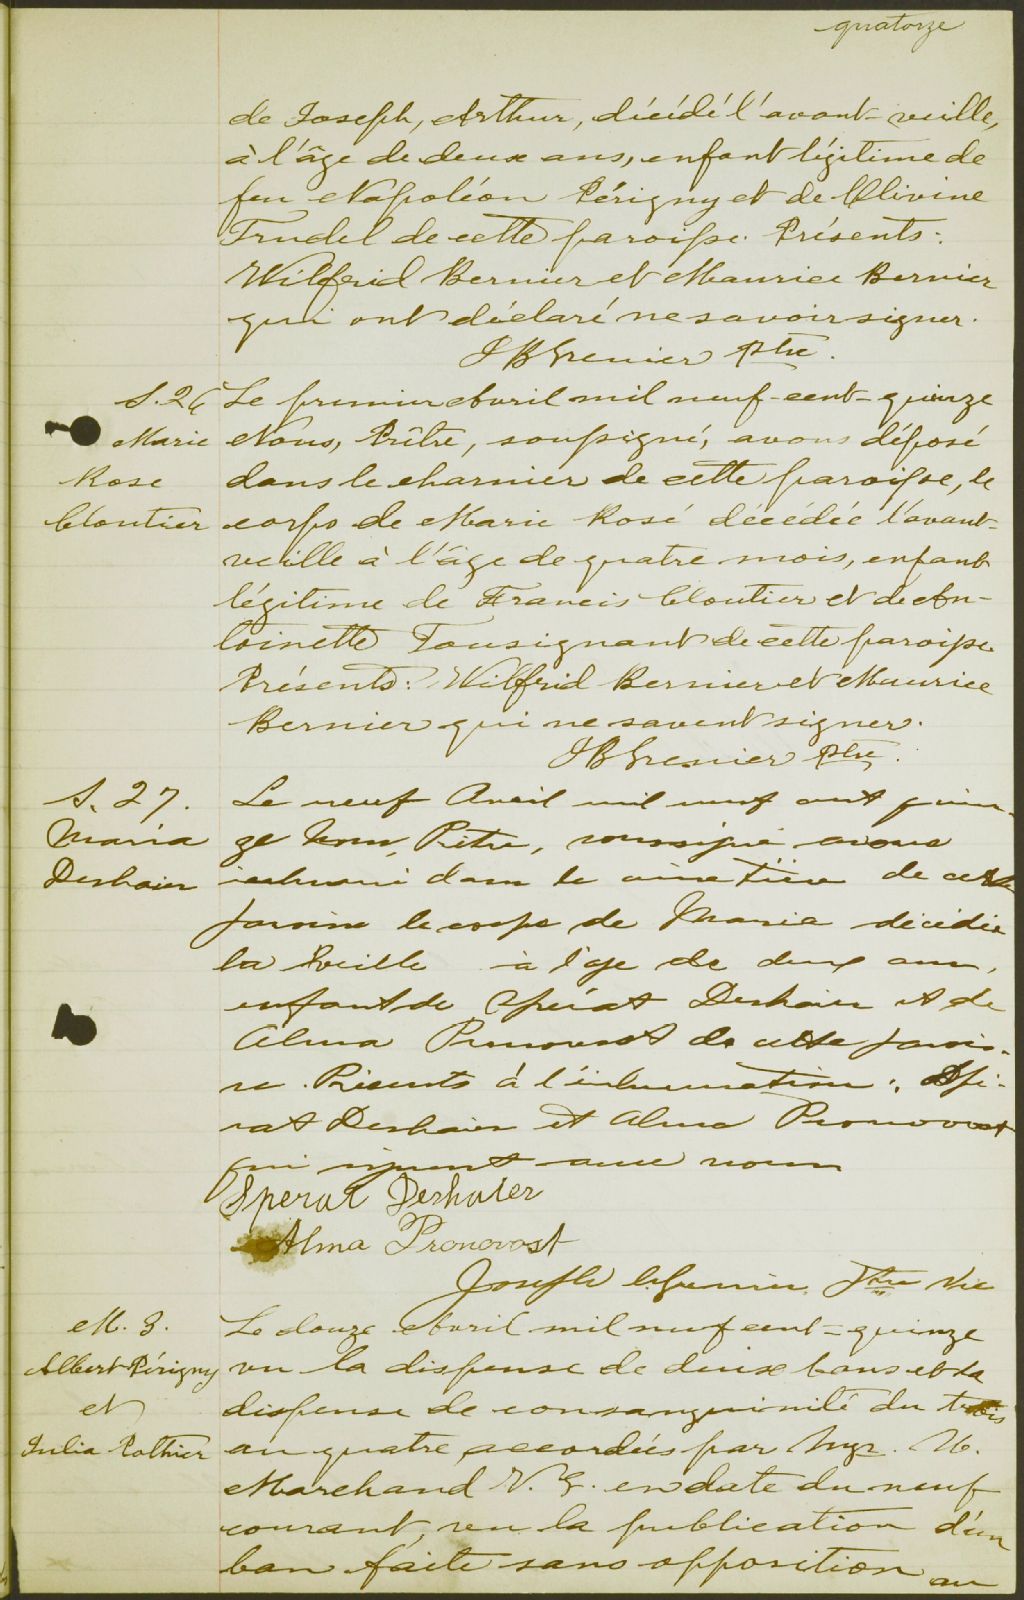 quatorze
de Joseph, Arthur, décédé l'avant-veille,
à l'âge de deux ans, enfant légitime de
feu Napoléon Périgny et de Olivine
Trudel de cette paroisse. Présents:
Wilfrid Bernier et Maurice Bernier
qui ont déclaré ne savoir signer.
J B Grenier Ptre.
S. 26
Marie
Rose
Cloutier
Le premier Avril mil neuf-cent-quinze
Nous, Prêtre, soussigné, avons déposé
dans le charnier de cette paroisse, le
corps de Marie Rose décédée l'avant-
veille à l'âge de quatre mois, enfant
légitime de Francis Cloutier et de An-
toinette Tousignant de cette paroisse
Présents: Wilfrid Bernier et Maurice
Bernier qui ne savent signer.
J B Grenier Ptre.
S. 27.
Maria
Deshaier
Le neuf Avril mil neuf cent quin-
ze Nous, Prêtre, soussigné avons
inhumé dans le cimetière de cette
paroisse le corps de Maria décédée
la veille à l'âge de deux ans,
enfant de Spérat Deshaier et de
Alma Pronovost de cette parois-
se. Présents à l'inhumation: Spé-
rat Deshaier et Alma Pronovost
qui signent avec nous
Sperat Deshaier
Alma Pronovost
Joseph Ptre Vic
M. 3.
Albert Périgny
et
Julia Pothier
Le douze Avril mil neuf cent-quinze
vu la dispense de deux bans et la
dispense de consanguinité du trois
au quatre, accordées par Mgr. U.
Marchand V. G. en date du neuf
courant, vu la publication d'un
ban faite sans opposition au